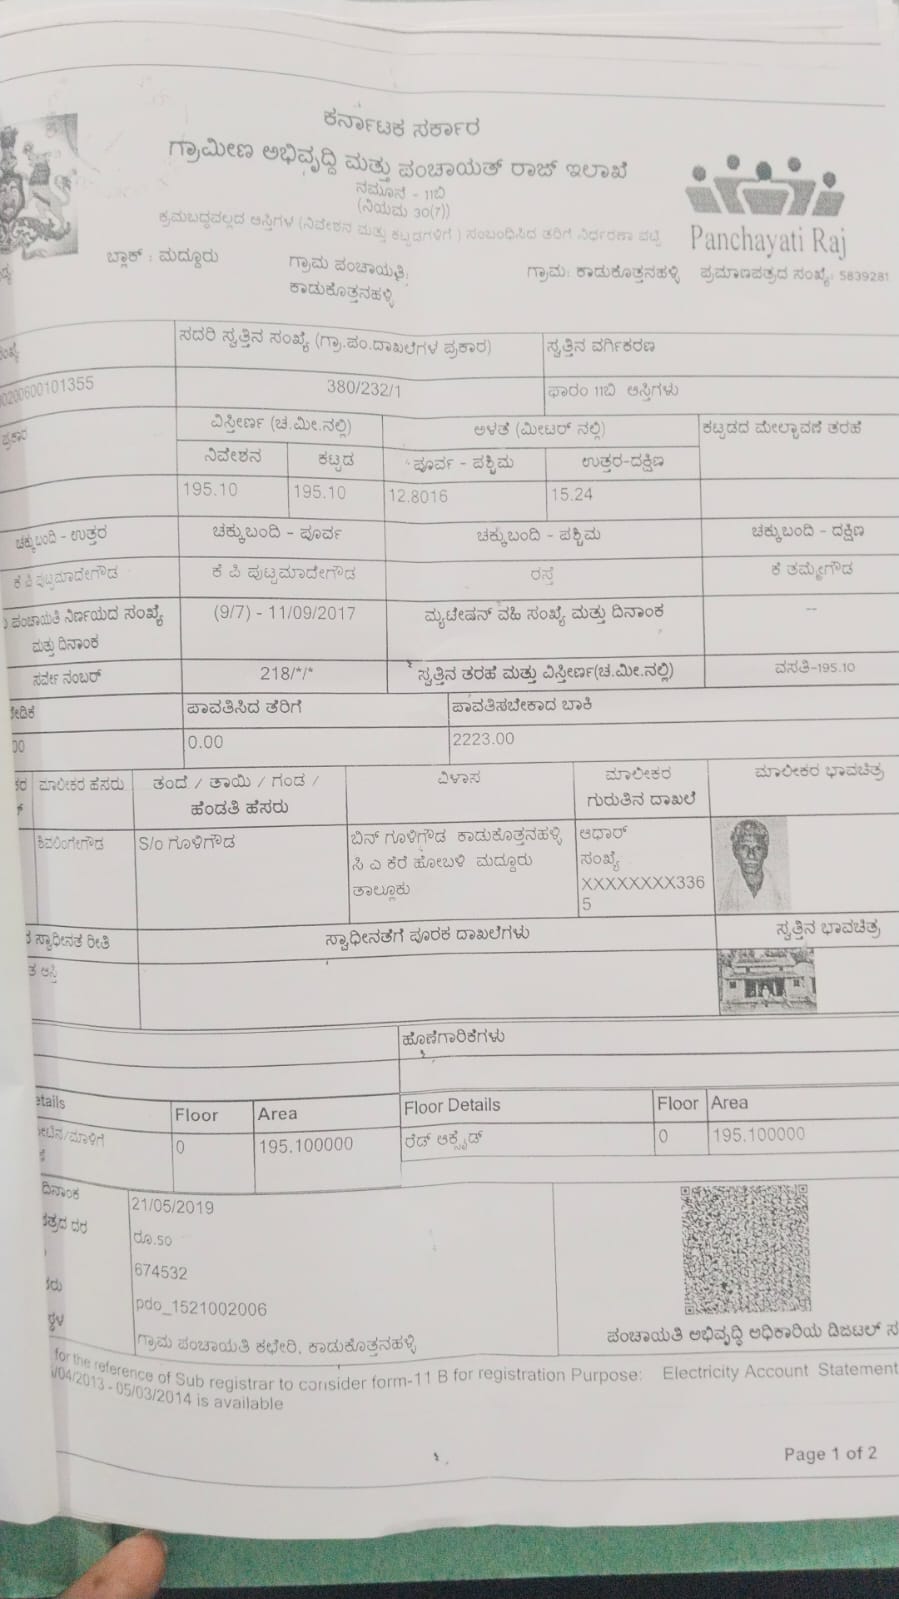 ಕರ್ನಾಟಕ ಸರ್ಕಾರ
ಗ್ರಾಮೀಣ ಅಭಿವೃದ್ಧಿ ಮತ್ತು ಪಂಚಾಯತ್ ರಾಜ್ ಇಲಾಖೆ
ನಮೂನೆ - 11ಬಿ
(ನಿಯಮ 30(7))
ಕ್ರಮಬದ್ಧವಲ್ಲದ ಆಸ್ತಿಗಳ (ನಿವೇಶನ ಮತ್ತು ಕಟ್ಟಡಗಳಿಗೆ ) ಸಂಬಂಧಿಸಿದ ತೆರಿಗೆ ನಿರ್ಧರಣಾ ಪಟ್ಟಿ
Panchayati Raj
ಬ್ಲಾಕ್ : ಮದ್ದೂರು
ಗ್ರಾಮ ಪಂಚಾಯತಿ:
ಕಾಡುಕೊತ್ತನಹಳ್ಳಿ
ಗ್ರಾಮ: ಕಾಡುಕೊತ್ತನಹಳ್ಳಿ ಪ್ರಮಾಣಪತ್ರದ ಸಂಖ್ಯೆ: 5839281
ಸದರಿ ಸ್ವತ್ತಿನ ಸಂಖ್ಯೆ (ಗ್ರಾ.ಪಂ.ದಾಖಲೆಗಳ ಪ್ರಕಾರ) ಸ್ವತ್ತಿನ ವರ್ಗೀಕರಣ
00200600101355 380/232/1 ಫಾರಂ 11ಬಿ ಆಸ್ತಿಗಳು
ಪ್ರಕಾರ ವಿಸ್ತೀರ್ಣ (ಚ.ಮೀ.ನಲ್ಲಿ) ಅಳತೆ (ಮೀಟರ್ ನಲ್ಲಿ) ಕಟ್ಟಡದ ಮೇಲ್ಛಾವಣಿ ತರಹೆ
ನಿವೇಶನ ಕಟ್ಟಡ ಪೂರ್ವ - ಪಶ್ಚಿಮ ಉತ್ತರ-ದಕ್ಷಿಣ
195.10 195.10 12.8016 15.24
ಚಕ್ಕುಬಂದಿ - ಉತ್ತರ ಚಕ್ಕುಬಂದಿ - ಪೂರ್ವ ಚಕ್ಕುಬಂದಿ - ಪಶ್ಚಿಮ ಚಕ್ಕುಬಂದಿ - ದಕ್ಷಿಣ
ಕೆ ಪಿ ಪುಟ್ಟಮಾದೇಗೌಡ ಕೆ ಪಿ ಪುಟ್ಟಮಾದೇಗೌಡ ರಸ್ತೆ ಕೆ ತಮ್ಮೇಗೌಡ
ಪಂಚಾಯತಿ ನಿರ್ಣಯದ ಸಂಖ್ಯೆ (9/7) - 11/09/2017 ಮ್ಯುಟೇಷನ್ ವಹಿ ಸಂಖ್ಯೆ ಮತ್ತು ದಿನಾಂಕ --
ಮತ್ತು ದಿನಾಂಕ
ಸರ್ವೇ ನಂಬರ್ 218/*/* ಸ್ವತ್ತಿನ ತರಹೆ ಮತ್ತು ವಿಸ್ತೀರ್ಣ(ಚ.ಮೀ.ನಲ್ಲಿ) ವಸತಿ-195.10
ಪಾವತಿಸಿದ ತೆರಿಗೆ ಪಾವತಿಸಬೇಕಾದ ಬಾಕಿ
00 0.00 2223.00
ಮಾಲೀಕರ ಹೆಸರು ತಂದೆ / ತಾಯಿ / ಗಂಡ / ವಿಳಾಸ ಮಾಲೀಕರ ಮಾಲೀಕರ ಭಾವಚಿತ್ರ
ಹೆಂಡತಿ ಹೆಸರು ಗುರುತಿನ ದಾಖಲೆ
ಶಿವಲಿಂಗೇಗೌಡ S/o ಗೂಳಿಗೌಡ ಬಿನ್ ಗೂಳಿಗೌಡ ಕಾಡುಕೊತ್ತನಹಳ್ಳಿ ಆಧಾರ್
ಸಿ ಎ ಕೆರೆ ಹೋಬಳಿ ಮದ್ದೂರು ಸಂಖ್ಯೆ
ತಾಲ್ಲೂಕು XXXXXXXX336
5
ಸ್ವಾಧೀನತೆ ರೀತಿ ಸ್ವಾಧೀನತೆಗೆ ಪೂರಕ ದಾಖಲೆಗಳು ಸ್ವತ್ತಿನ ಭಾವಚಿತ್ರ
ಆಸ್ತಿ
ಹೊಣೆಗಾರಿಕೆಗಳು
etails Floor Area Floor Details Floor Area
0 195.100000 ರೆಡ್ ಆಕ್ಸೈಡ್ 0 195.100000
ದಿನಾಂಕ 21/05/2019
ದರ ರೂ.50
674532
pdo_1521002006
ಗ್ರಾಮ ಪಂಚಾಯತಿ ಕಛೇರಿ, ಕಾಡುಕೊತ್ತನಹಳ್ಳಿ
ಪಂಚಾಯತಿ ಅಭಿವೃದ್ಧಿ ಅಧಿಕಾರಿಯ ಡಿಜಿಟಲ್ ಸ
for the reference of Sub registrar to consider form-11 B for registration Purpose: Electricity Account Statement
/04/2013 - 05/03/2014 is available
Page 1 of 2